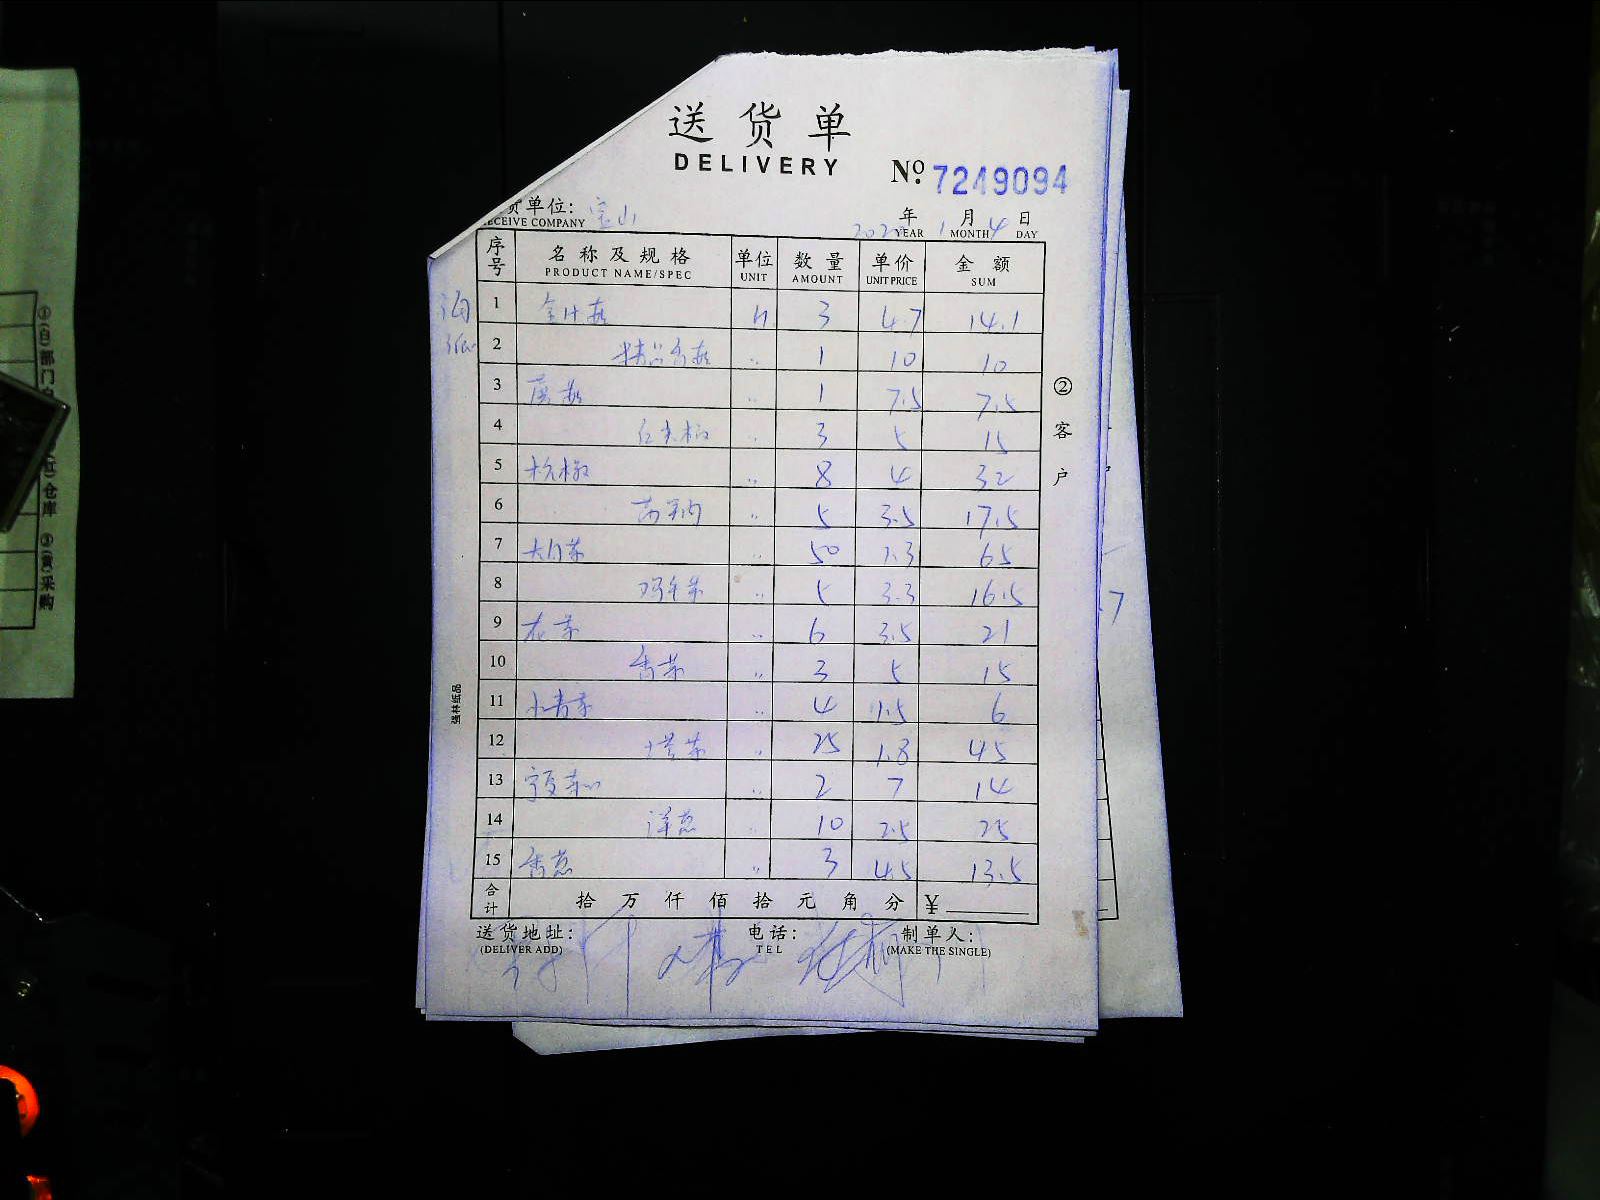 送货单
DELIVERY
No. 7249094
货单位: 宝山
RECEIVE COMPANY
年 1 月 4 日
YEAR MONTH DAY
序号 名称及规格 单位 数量 单价 金额
PRODUCT NAME/SPEC UNIT AMOUNT UNIT PRICE SUM
1 金针菇 斤 3 4.7 14.1
2 精品香菇 〃 1 10 10
3 菇 〃 1 7.5 7.5
4 红尖椒 〃 3 5 15
5 杭椒 〃 8 4 32
6 〃 5 3.5 17.5
7 大白菜 〃 50 1.3 65
8 〃 5 3.3 16.5
9 菜 〃 6 3.5 21
10 香菜 〃 3 5 15
11 小青菜 〃 4 1.5 6
12 塔菜 〃 25 1.8 45
13 宁夏菜心 〃 2 7 14
14 洋葱 〃 10 2.5 25
15 香葱 〃 3 4.5 13.5
合计 拾 万 仟 佰 拾 元 角 分 ¥
送货地址: 电话: 制单人:
(DELIVER ADD) TEL (MAKE THE SINGLE)
②客户
强林纸品
仓库 ③(黄)采购